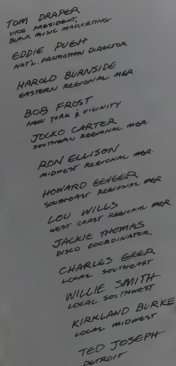 TOM DRAPER
VICE PRESIDENT,
BLACK MUSIC MARKETING
EDDIE PUGH
NAT'L. PROMOTION DIRECTOR
HAROLD BURNSIDE
EASTERN REGIONAL MGR.
BOB FROST
NEW YORK & VICINITY
JOCKO CARTER
SOUTHERN REGIONAL MGR.
RON ELLISON
MIDWEST REGIONAL MGR.
HOWARD GEIGER
SOUTHEAST REGIONAL MGR
LOU WILLS
WEST COAST REGIONAL MGR
JACKIE THOMAS
DISCO COORDINATOR
CHARLES GEER
LOCAL SOUTHEAST
WILLIE SMITH
LOCAL SOUTHWEST
KIRKLAND BURKE
LOCAL MIDWEST
TED JOSEPH
DETROIT